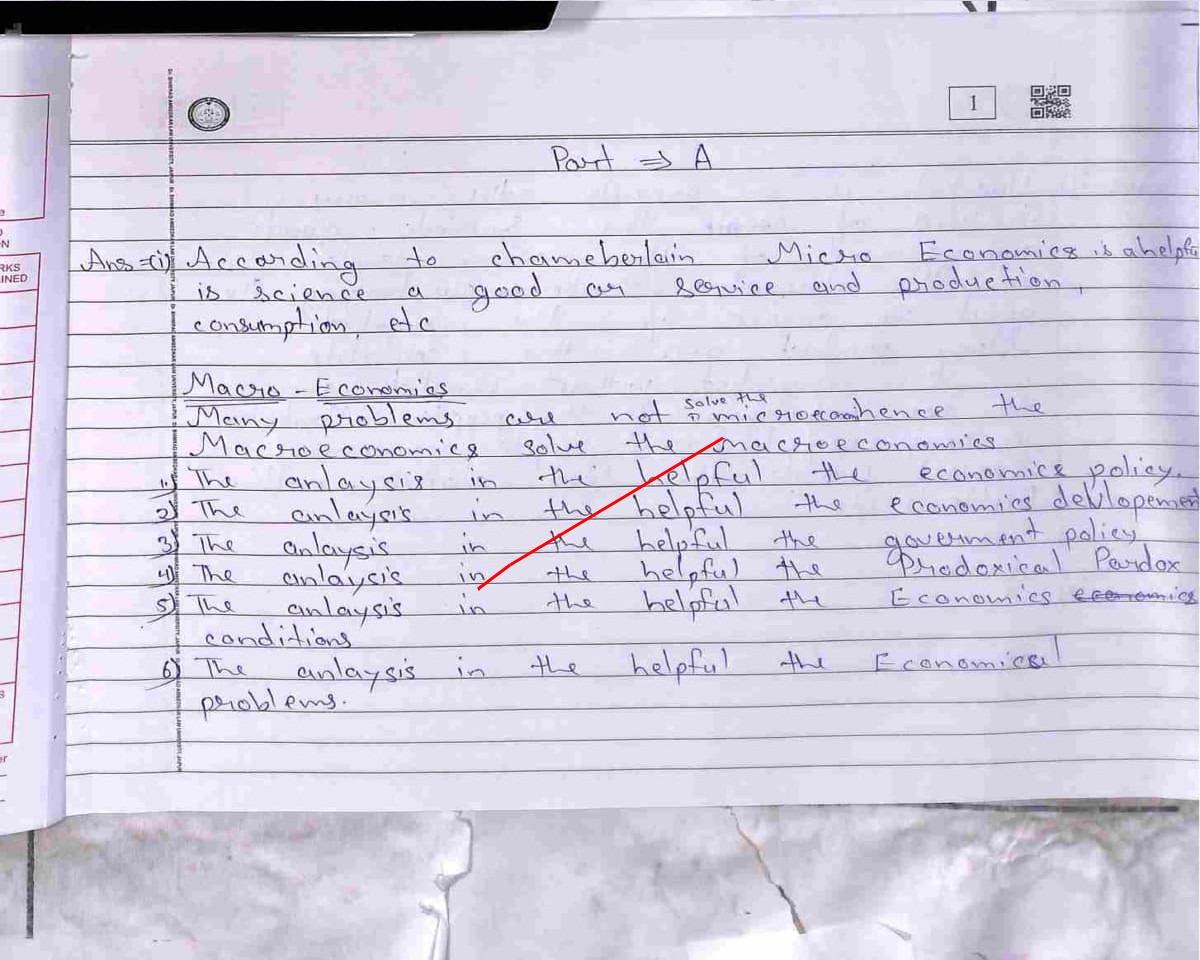 1
Part ⇒ A
Ans=(i) According to chameberlain Micro Economics is a helpful
is science a good or service and production,
consumption, etc
Macro - Economics
Many problems are not solve the microeconom hence the
Macroeconomics solve the macroeconomics
1) The anlaysis in the helpful the economics policy.
2) The anlaysis in the helpful the economics devlopement
3) The anlaysis in the helpful the goverment policy
4) The anlaysis in the helpful the Prodoxical Pardox
5) The anlaysis in the helpful the Economics economics
conditions
6) The anlaysis in the helpful the Economical
problems.